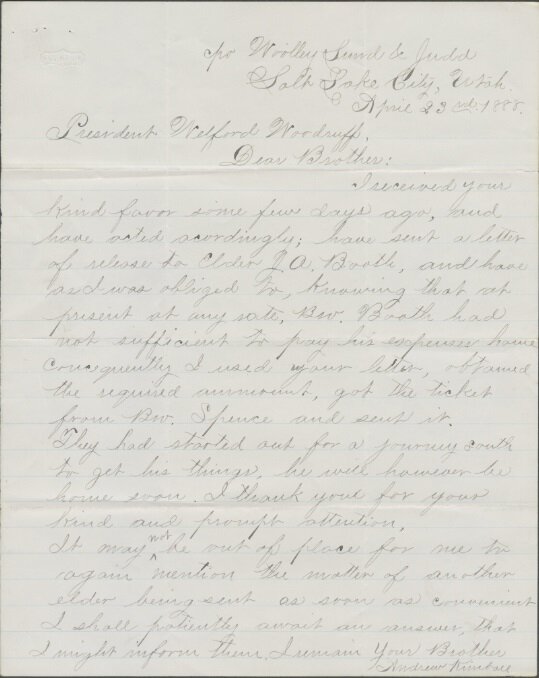 c/o Woolley Lund & Judd
Salt Lake City, Utah.
April 23rd. 1888.
President Welford Woodruff,
Dear Brother:
I received your
kind favor some few days ago, and
have acted acordingly; have sent a letter
of release to Elder J. A. Booth, and have
as I was obliged to, knowing that at
present at any rate, Bro. Booth had
not sufficient to pay his expenses home
consequently I used your letter, obtained
the required ammount, got the ticket
from Bro. Spence and sent it.
They had started out for a journey south
to get his things, he will however be
home soon. I thank you for your
kind and prompt attention.
It may not be out of place for me to
again mention the matter of another
elder being sent as soon as convenient
I shall patiently await an answer, that
I might inform them. I remain Your Brother
Andrew Kimball